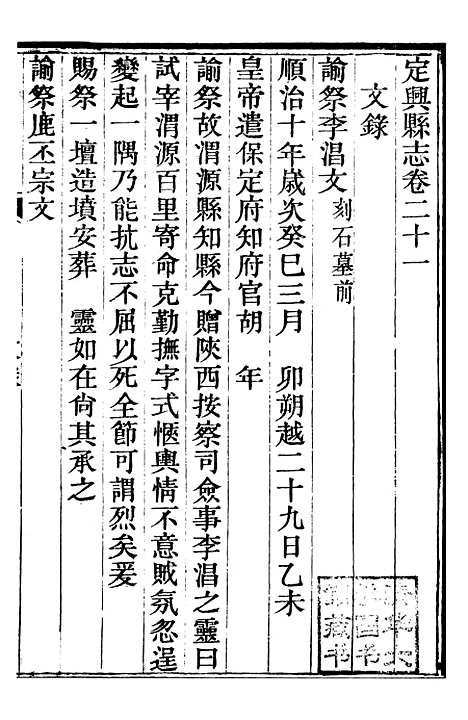 定興縣志卷二十一
文錄
諭祭李淐文 刻石墓前
順治十年歲次癸巳三月 卯朔越二十九日乙未
皇帝遣保定府知府官胡 年
諭祭故渭源縣知縣今贈陝西按察司僉事李淐之靈曰
試宰渭源百里寄命克勤撫字式愜輿情不意賊氛忽逞
變起一隅乃能抗志不屈以死全節可謂烈矣爰
賜祭一壇造墳安葬 靈如在尙其承之
諭祭鹿丕宗文